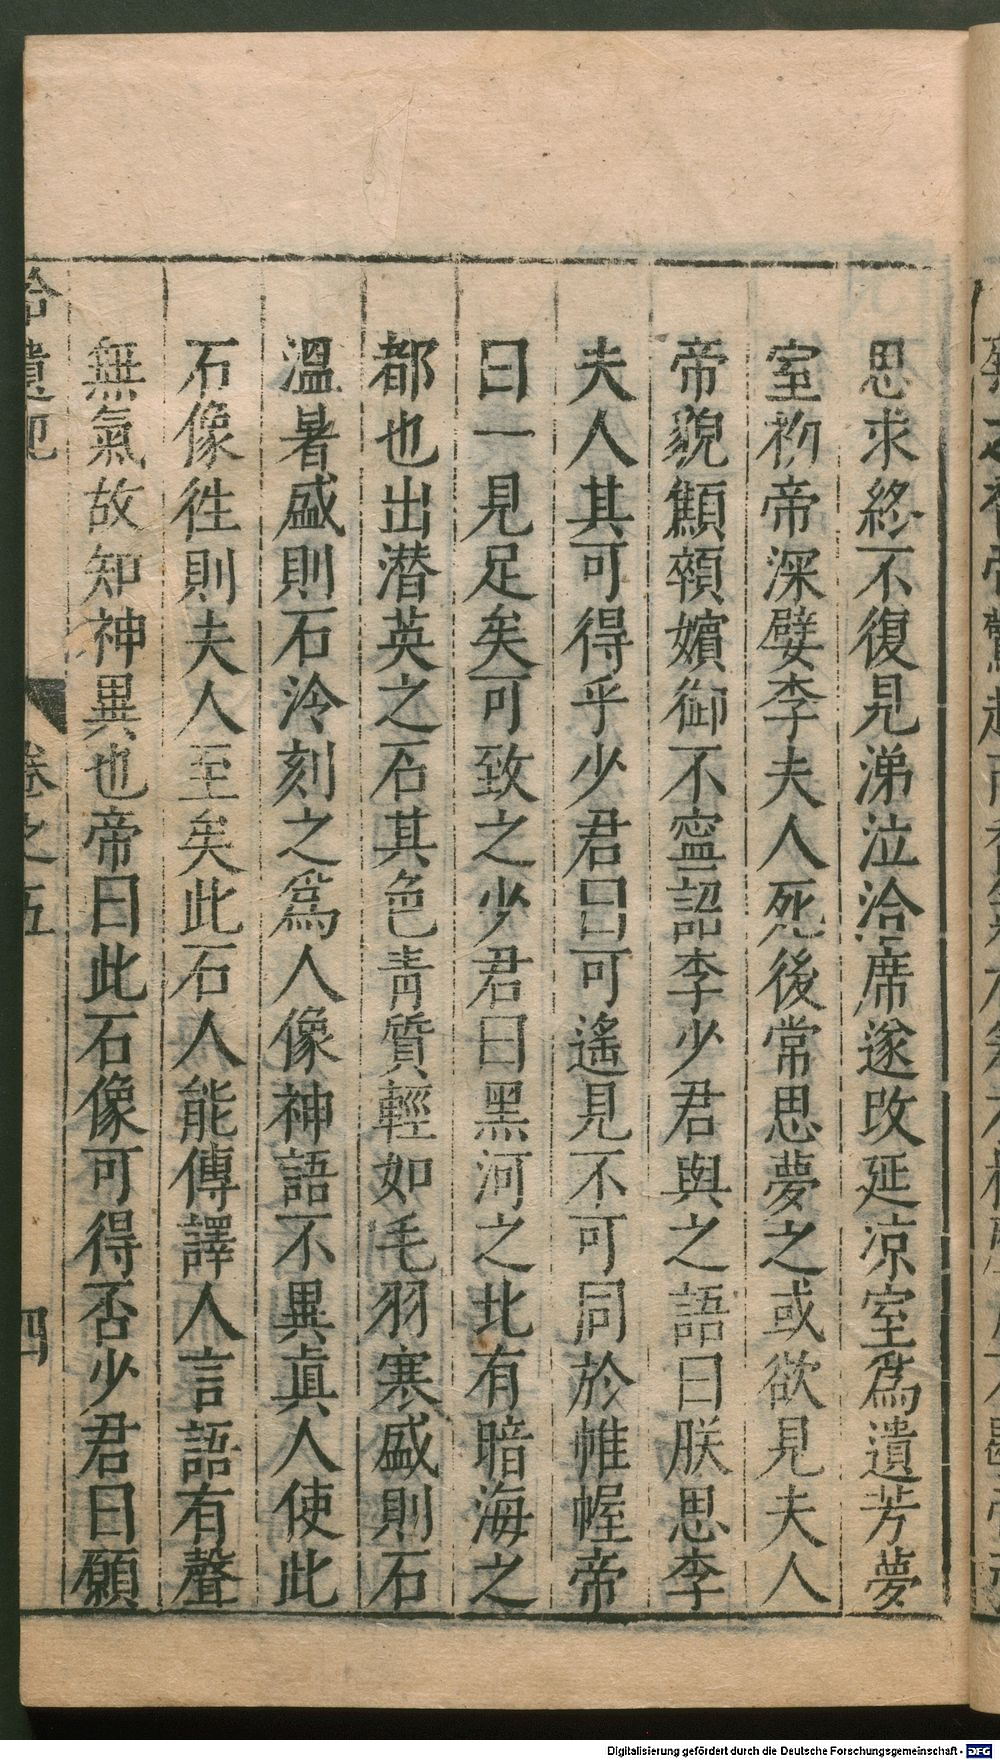 思求終不復見涕泣洽席遂改延凉室為遺芳夢
室初帝深嬖李夫人死後常思夢之或欲見夫人
帝貌顦顇嬪御不寧詔李少君與之語曰朕思李
夫人其可得乎少君曰可遙見不可同於帷幄帝
曰一見足矣可致之少君曰黑河之北有暗海之
都也出潛英之石其色青質輕如毛羽寒盛則石
溫暑盛則石冷刻之為人像神語不異真人使此
石像徃則夫人至矣此石人能傳譯人言語有聲
無氣故知神異也帝曰此石像可得否少君曰願
拾遺記 卷之五 四
Digitalisierung gefördert durch die Deutsche Forschungsgemeinschaft - DFG